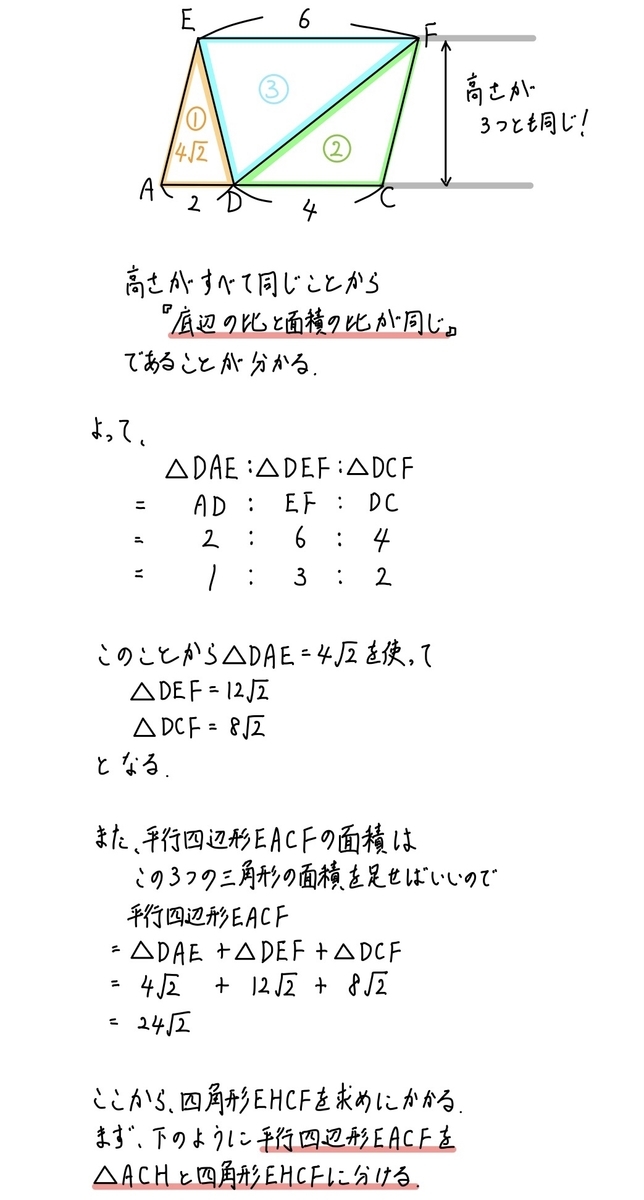 E 6 F
③
①
4√2
②
高さが
3つとも同じ!
A 2 D 4 C
高さがすべて同じことから
『底辺の比と面積の比が同じ』
であることが分かる.
よって、
△DAE:△DEF:△DCF
= AD : EF : DC
= 2 : 6 : 4
= 1 : 3 : 2
このことから△DAE=4√2を使って
△DEF=12√2
△DCF=8√2
となる.
また、平行四辺形EACFの面積は
この3つの三角形の面積を足せばいいので
平行四辺形EACF
= △DAE + △DEF + △DCF
= 4√2 + 12√2 + 8√2
= 24√2
ここから、四角形EHCFを求めにかかる.
まず、下のように平行四辺形EACFを
△ACHと四角形EHCFに分ける.